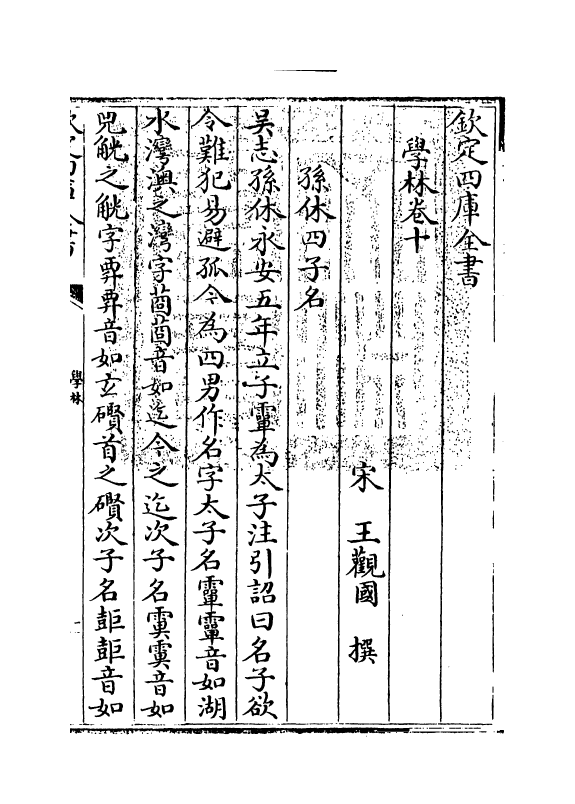 欽定四庫全書
學林卷十
宋 王觀國 撰
孫休四子名
吳志孫休永安五年立子𩅦為太子注引詔曰名子欲
令難犯易避孤今為四男作名字太子名𩅦𩅦音如湖
水灣澳之灣字莔莔音如迄今之迄次子名音如
兕觥之觥字音如玄礥首之礥次子名音如
學林